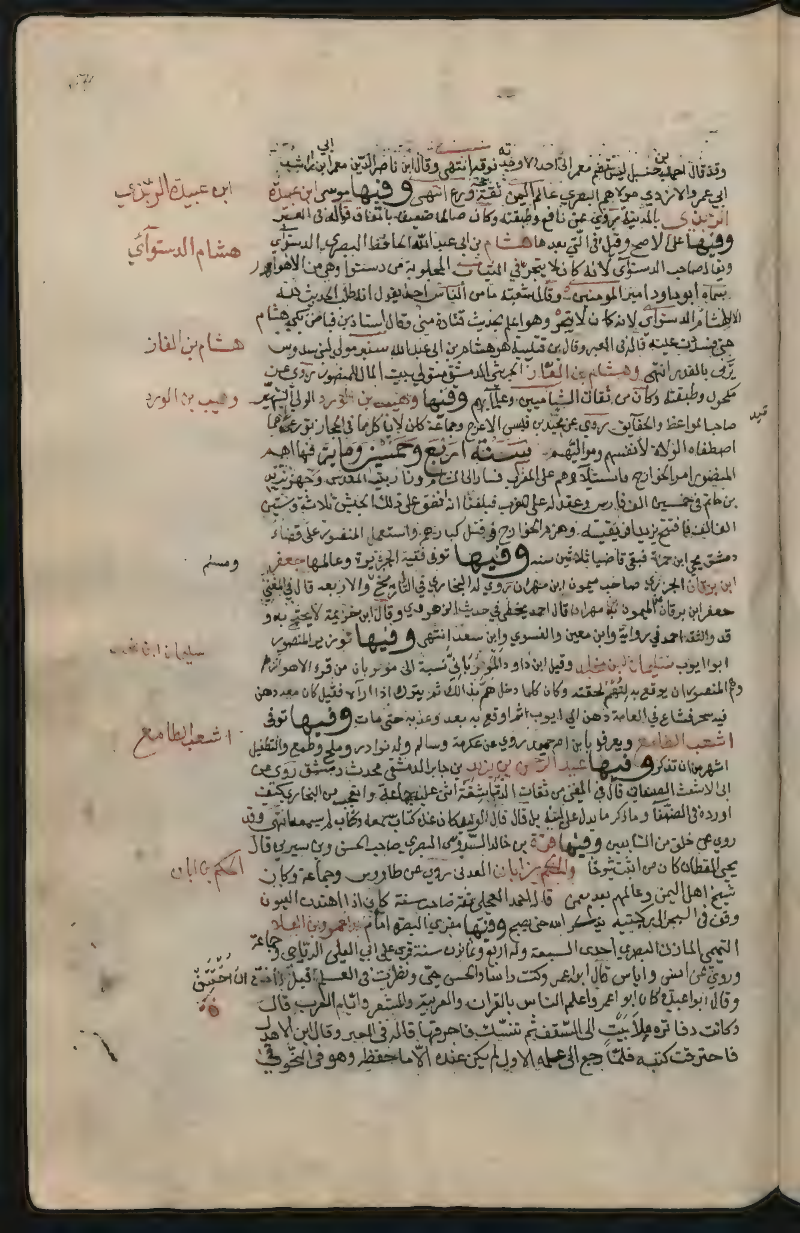 وقد قال احمد بن حنبل ليس تضم معمر الى احد الا وجدته فوقه انتهى وقال ابن ناصر الدين معمر ابن راشد ابي
ابي عمر والازدي مولاهم البصري عالم اليمن ثقة ورع انتهى وفيها موسى ابن عبيدة
الربذي بالمدينة روى عن نافع وطبقته وكان صالحا ضعيفا باتفاق قاله في العبر
وفيها على الاصح وقيل في التي بعدها هشام بن ابي عبد الله الحافظ البصري الدستوآي
ويقال صاحب الدستوآي لانه كان لا يتجر في الثياب المجلوبة من دستوا وهي من الاهواز
سماه ابو داود امير المومنين وقال شعبة ما من الناس احد يقول انه طلب الحديث لله
الا هشام الدستوآي لانه كان وهو اعلم بحديث قتادة مني وقال بكى هشام
حتى فسدت عينه قاله في العبر وقال بن قتيبة هو هشام بن ابي عبد الله سنبر مولى لبني سدوس
يرمى بالقدر انتهى وهشام بن الغاز الجرشي الدمشقي متولي بيت المال للمنصور روى عن
مكحول وطبقته وكان من ثقات الشاميين وعلمآيهم وفيها وهيب بن الورد الولي الشهير
صاحب المواعظ والحقآيق روى عن حميد بن قيس الاعرج وجماعة
اصطفاه الولاة لانفسهم ومواليهم سنة اربع وخمسين وماية فيها اهم
المنصور امر الخوارج واستيلآوهم على المغرب فسار الى الشام وزار بيت المقدس وجهز يزيد
بن حاتم في خمسين الف فارس وعقد له على المغرب فبلغنا انه انفق على ذلك الجيش ثلاثة وستين
الف الف فافتتح يزيد افريقية وهزم الخوارج وقتل كبارهم واستعمل المنصور على قضاء
دمشق يحيى ابن حمزة فبقى قاضيا ثلاثين سنة وفيها توفى فقيه الجزيرة وعالمها جعفر
ابن برقان الجزري صاحب ميمون ابن مهران روى له البخاري في التاريخ والاربعة قال في المغني
جعفر ابن برقان عن الميمون بن مهران قال احمد يخطي في حديث الزهري وقال ابن خزيمة لا يحتج به و
قد وثقه احمد في رواية وابن معين والفسوي وابن سعد انتهى وفيها توفى وزير المنصور
ابو ايوب سليمان ابن مخلد وقيل ابن داود المورياني نسبة الى موريان من قرى الاهواز
وهم المنصور ان يوقع به لتهم لحقته وكان كلما دخل هم بذالك ثم يترك اذا رآه فقيل كان معه دهن
فيه سحر فشاع في العامة دهن ابي ايوب ثم اوقع به بعد وعذبه حتى مات وفيها توفى
اشعب الطامع ويعرف بابن ام حميد روى عن عكرمة وسالم وله نوادر وملح وطمع والتطفيل
اشهر من ان تذكر وفيها عبد الرحمن بن يزيد بن جابر الدمشقي محدث دمشق روى عن
ابي الاشعث الصنعاني قال في المغني من ثقات الدماشقة اثنى عليه جماعة من البخاري كيف
اورده في الضعفآ وما ذكر ما يدل على لينه بل قال قال الوليد كان عنده كتاب سمعه وكتاب لم يسمعه انتهى وقد
روى عن خلق من التابعين وفيها قرة بن خالد السدوسي البصري صاحب الحسن وبن سيرين قال
يحيى القطان كان من اثبت شيوخنا والحكم بن ابان العدني روى عن طاووس وجماعة وكان
شيخ اهل اليمن وعالمهم بعد معمر قال احمد العجلي ثقة صاحب سنة كان اذا هدات العيون
وقف في البحر الى ركبتيه يذكر الله حتى يصبح وفيها مقري البصرة امام ابو عمرو بن العلا
التميمي المازني البصري احدى السبعة وله اربع وثمانون سنة قرى على ابي العالية الرياحي وجماعة
وروى عن انس واياس قال ابو عمر وكنت راسا والحسن حي ونظرت في العلم قبل ان اختتن
وقال ابو عبيدة كان ابو اعمر واعلم الناس بالقران والعربية والشعر وايام العرب قال
وكانت دفاتره ملا بيت الى السقف ثم تنسك فاحرقها قاله في العبر وقال ابن الاهدل
فاحترقت كتبه فلما رجع الى علمه الاول لم يكن عنده الا ما حفظه وهو في النحو في
ابن عبيدة الربذي
هشام الدستوآي
هشام بن الغاز
وهيب بن الورد
ومسلم
سليمان ابن مخلد
اشعب الطامع
الحكم بن ابان